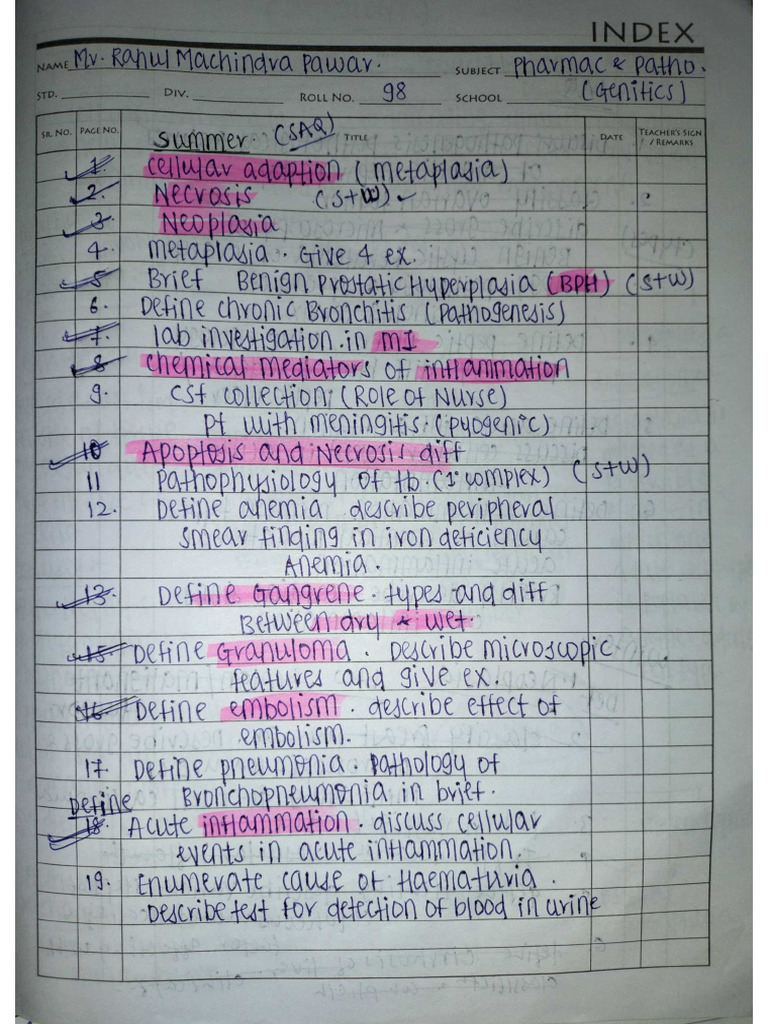 INDEX
NAME Mr. Rahul Machindra Pawar. SUBJECT Pharmac & Patho.
STD. DIV. ROLL NO. 98 SCHOOL (Genitics)
SR. NO. PAGE NO. Summer (SAQ) TITLE DATE TEACHER'S SIGN / REMARKS
1. Cellular adaption (metaplasia)
2. Necrosis (S+W)
3. Neoplasia
4. Metaplasia. Give 4 ex.
5. Brief Benign Prostatic Hyperplasia (BPH) (S+W)
6. Define chronic Bronchitis (Pathogenesis)
7. lab investigation in MI
8. Chemical mediators of inflammation
9. CSF collection (Role of Nurse)
Pt with meningitis. (pyogenic)
10 Apoptosis and Necrosis diff
11 Pathophysiology of tb. (1° complex) (S+W)
12. Define anemia. describe peripheral
smear finding in iron deficiency
Anemia.
13. Define Gangrene. types and diff
Between dry & wet.
15. Define Granuloma. Describe microscopic
features and give ex.
16. Define embolism. describe effect of
embolism.
17. Define pneumonia. Pathology of
Bronchopneumonia in brief.
Define
18. Acute inflammation. discuss cellular
events in acute inflammation.
19. Enumerate cause of Haematuria.
Describe test for detection of blood in urine